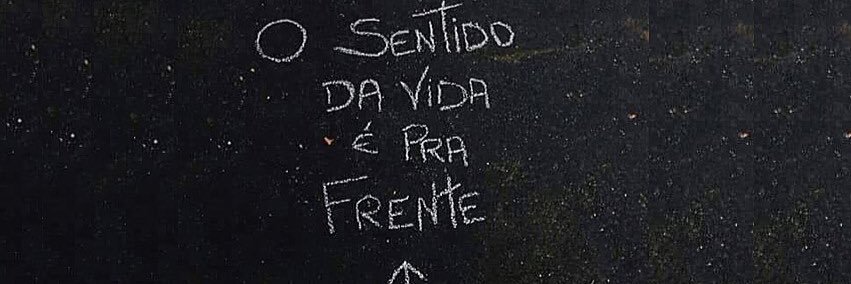 O SENTIDO
DA VIDA
É PRA
FRENTE